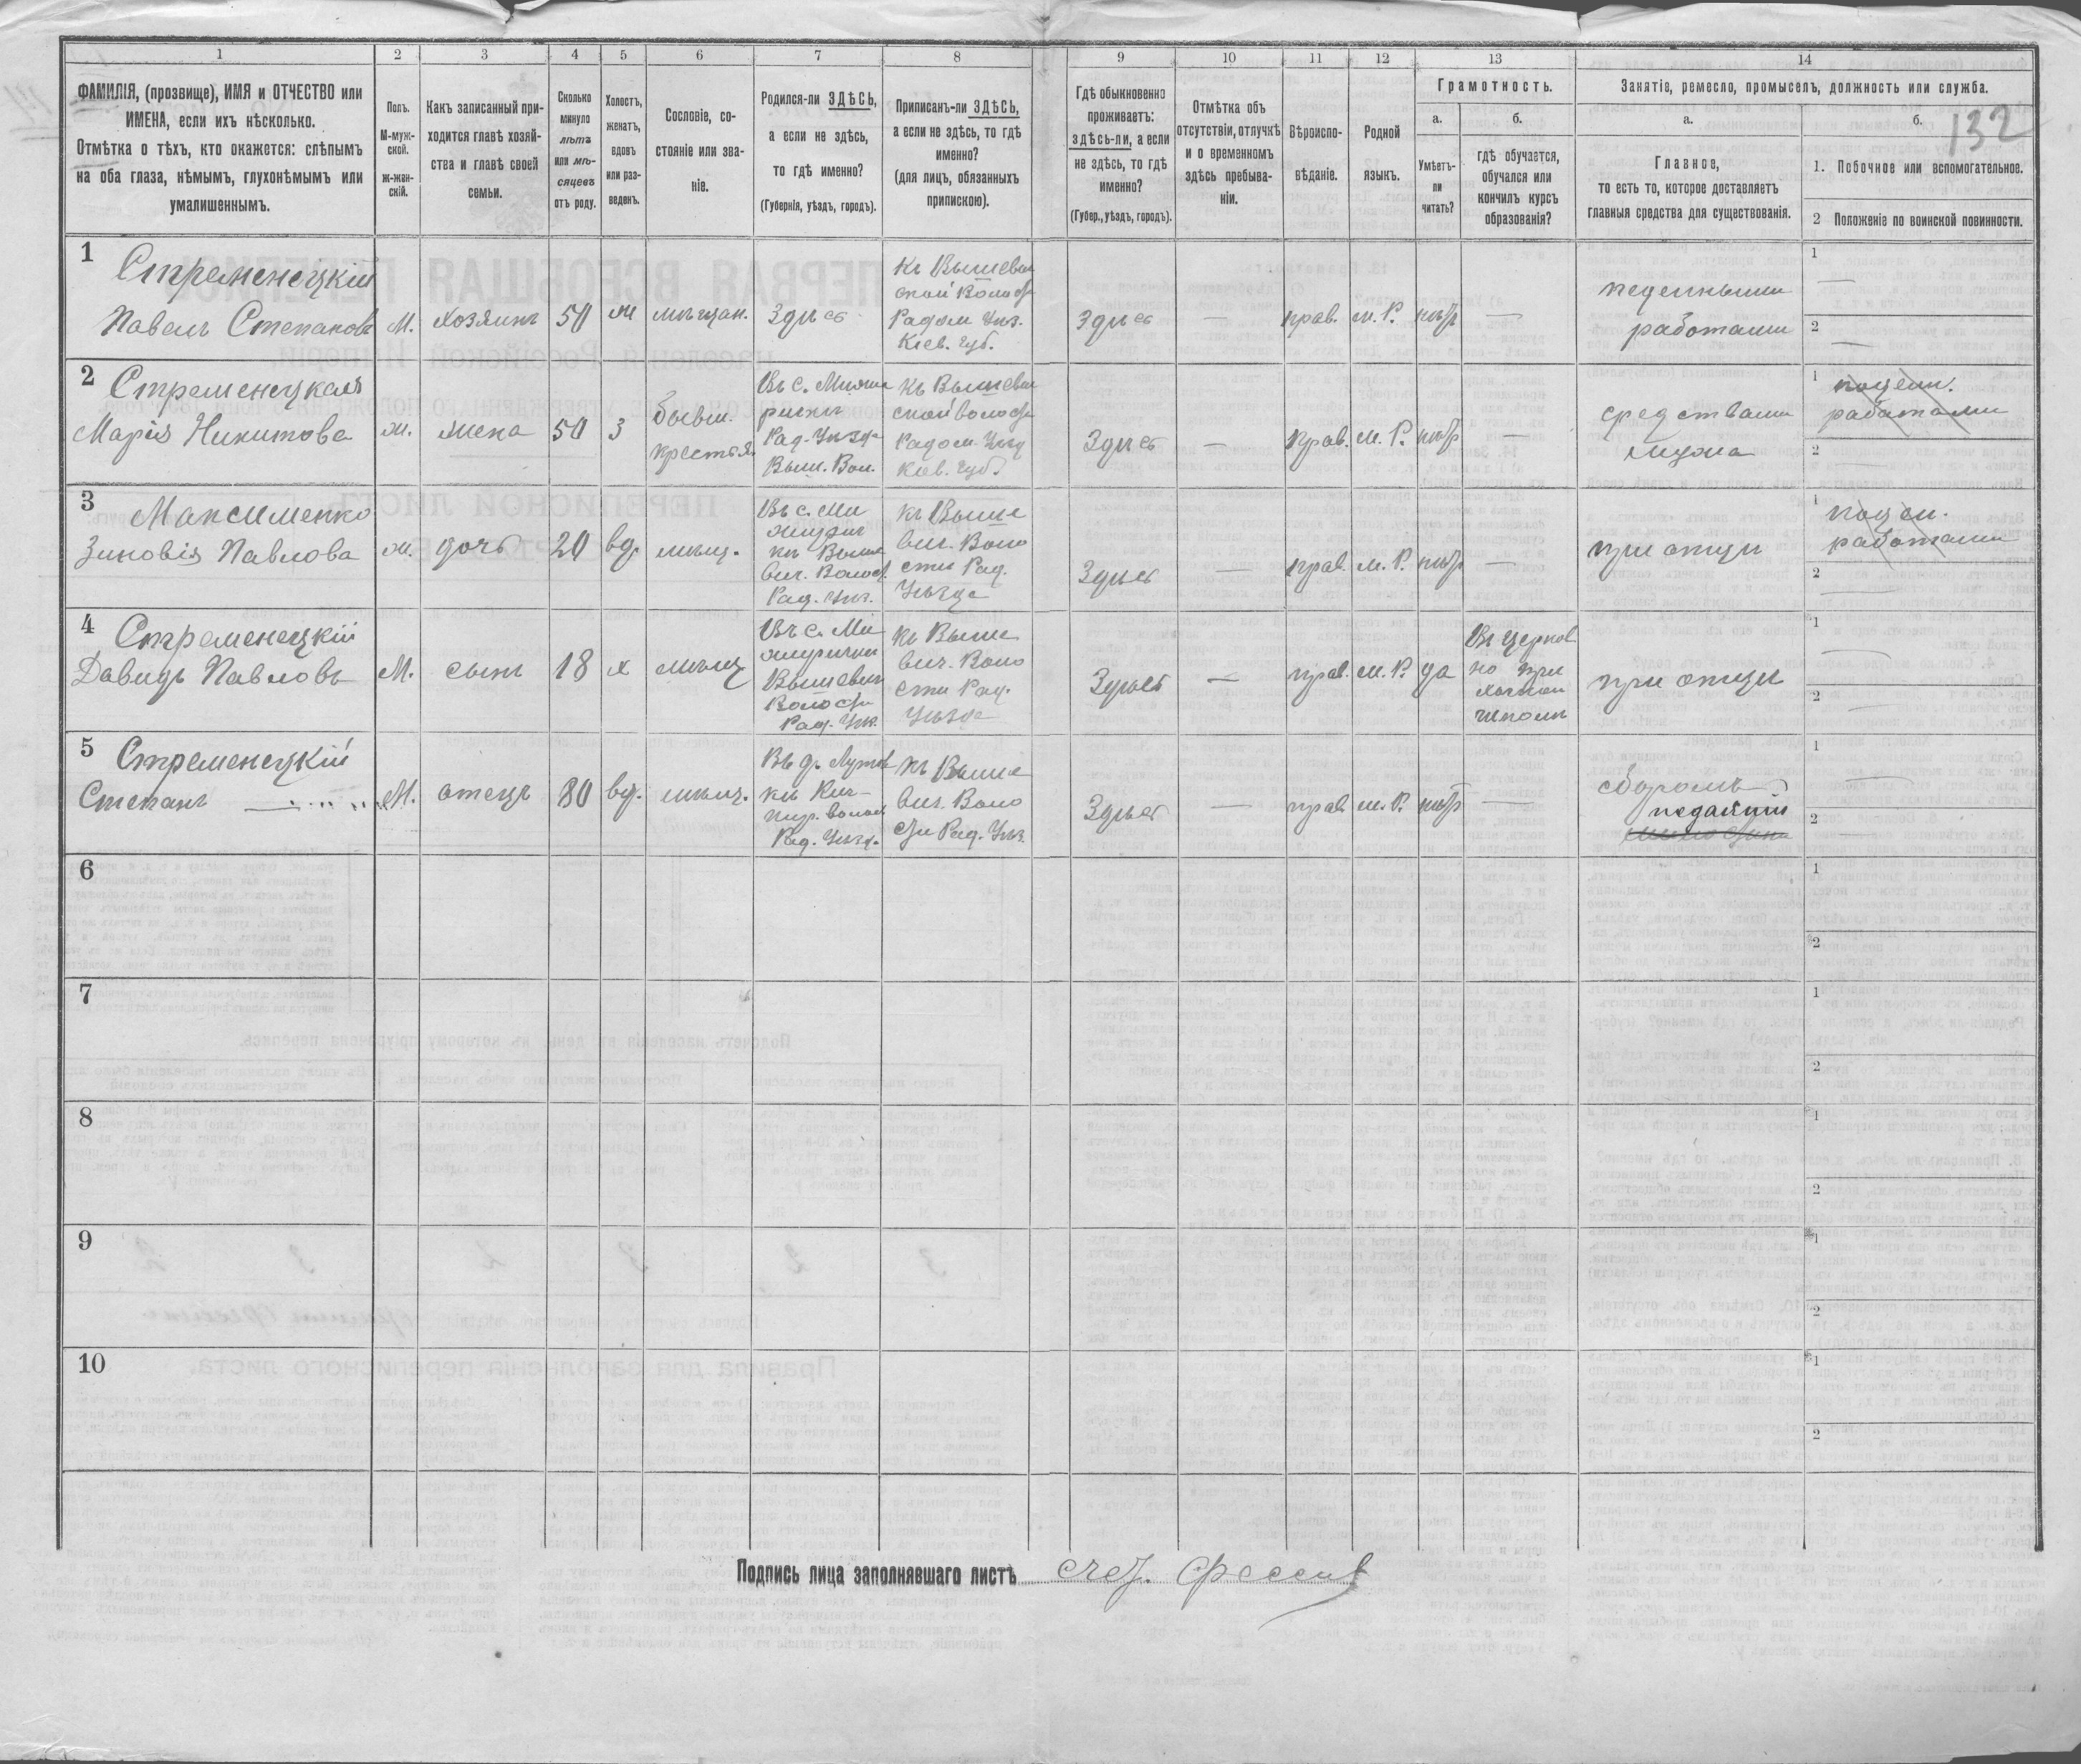 1 2 3 4 5 6 7 8 9 10 11 12 13 14
ФАМИЛІЯ, (прозвище), ИМЯ и ОТЧЕСТВО или
ИМЕНА, если ихъ нѣсколько.
Отмѣтка о тѣхъ, кто окажется: слѣпымъ
на оба глаза, нѣмымъ, глухонѣмымъ или
умалишеннымъ.
Полъ.
М-муж-
ской.
ж-жен-
скій.
Какъ записанный при-
ходится главѣ хозяй-
ства и главѣ своей
семьи.
Сколько
минуло
лѣтъ
или мѣ-
сяцевъ
отъ роду.
Холостъ,
женатъ,
вдовъ
или раз-
веденъ.
Сословіе, со-
стояніе или зва-
ніе.
Родился-ли ЗДѢСЬ,
а если не здѣсь,
то гдѣ именно?
(Губернія, уѣздъ, городъ).
Приписанъ-ли ЗДѢСЬ,
а если не здѣсь, то гдѣ
именно?
(для лицъ, обязанныхъ
припискою).
Гдѣ обыкновенно
проживаетъ:
здѣсь-ли, а если
не здѣсь, то гдѣ
именно?
(Губер., уѣздъ, городъ).
Отмѣтка объ
отсутствіи, отлучкѣ
и о временномъ
здѣсь пребыва-
ніи.
Вѣроиспо-
вѣданіе.
Родной
языкъ.
Грамотность.
а.
Умѣетъ-
ли
читать?
б.
гдѣ обучается,
обучался или
кончилъ курсъ
образованія?
Занятіе, ремесло, промыселъ, должность или служба.
а.
Главное,
то есть то, которое доставляетъ
главныя средства для существованія.
б.
132
1. Побочное или вспомогательное.
2 Положеніе по воинской повинности.
1
Стременецкій
Павелъ Степановъ
М.
хозяинъ
50
ж
мѣщан.
Здѣсь
къ Вышевич
ской Волости
Радом Уѣз.
Кіев. Губ.
Здѣсь
—
прав.
м. Р.
нѣтъ
—
работами
1 —
2 —
2
Стременецкая
Марія Никитова
ж.
жена
50
З
бывш.
крестья.
Радом. Уѣзд
Кіев. Губ.
Здѣсь
—
прав.
м. Р.
нѣтъ
—
средствами
мужа
1 поден.
работами
2 —
3
Максименко
Зиновія Павлова
ж.
дочь
20
вд.
мѣщ.
къ Выше
вич. Воло
сти Рад.
Уѣзда
Здѣсь
—
прав.
м. Р.
нѣтъ
—
при отцѣ
1 поден.
работами
2 —
4
Стременецкій
Давидъ Павловъ
М.
сынъ
18
х
мѣщ
къ Выше
вич. Воло
сти Рад.
Уѣзда
Здѣсь
—
прав.
м. Р.
да
Въ церков
но при
ходской
школѣ
при отцѣ
1 —
2 —
5
Стременецкій
Степанъ
М.
отецъ
80
вд.
мѣщ.
къ Выше
вич. Воло
сти Рад. Уѣз.
Здѣсь
—
прав
м. Р.
нѣтъ
—
сборомъ
подаяній
1 —
2 —
6
1
2
7
1
2
8
1
2
9
1
2
10
1
2
Подпись лица заполнявшаго листъ